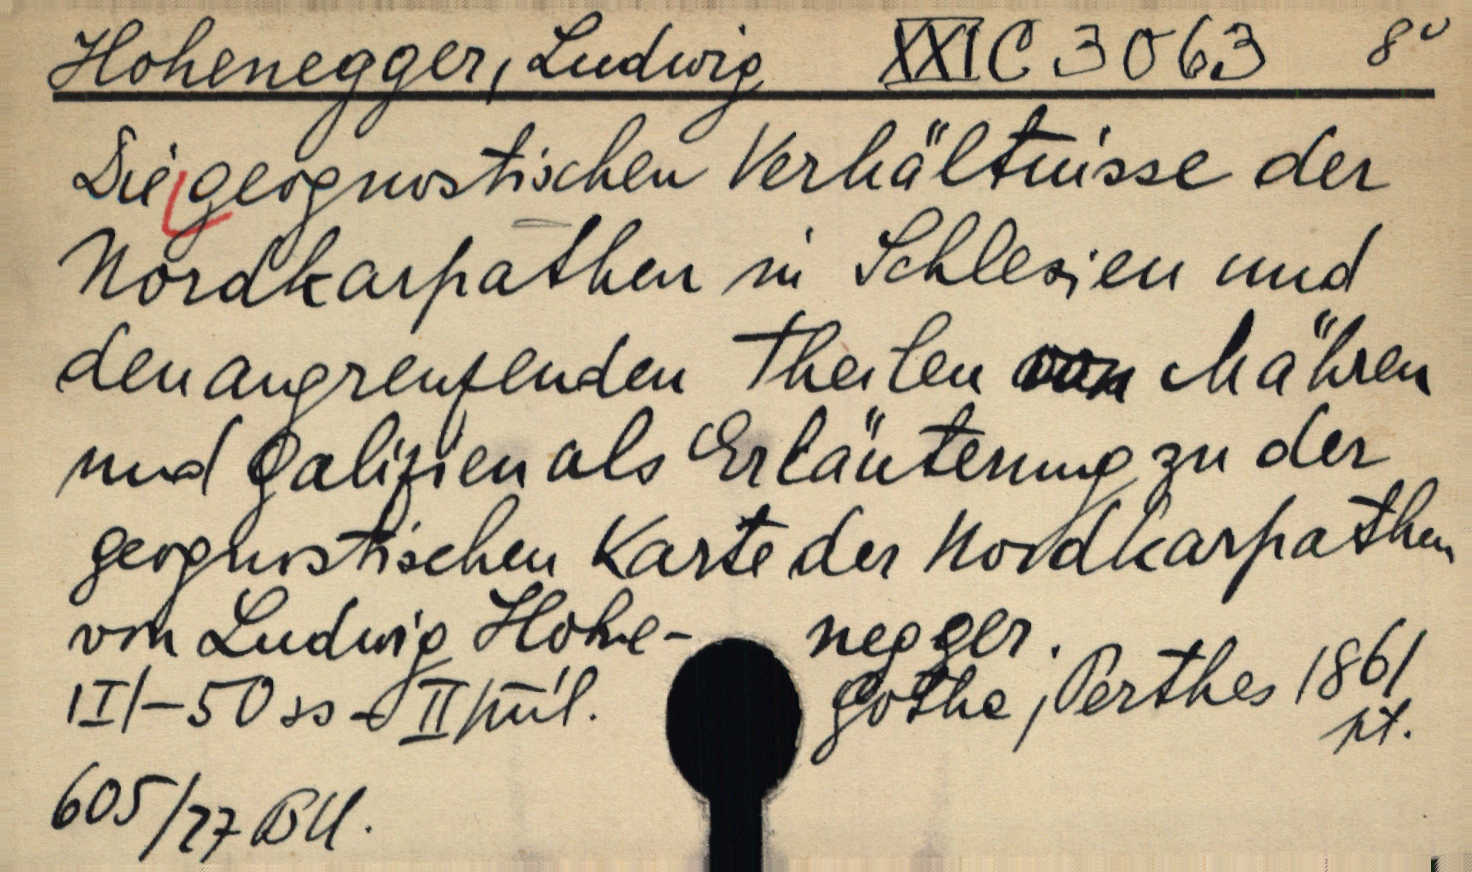 Hohenegger, Ludwig XXI C 3063 8°
Die geognostischen Verhältnisse der
Nordkarpathen in Schlesien und
den angrenzenden Theilen von Mähren
und Galizien als Erläuterung zu der
geognostischen Karte der Nordkarpathen
von Ludwig Hohe- negger.
|I|-50 ss - II příl. Gotha, Perthes 1861
605/27